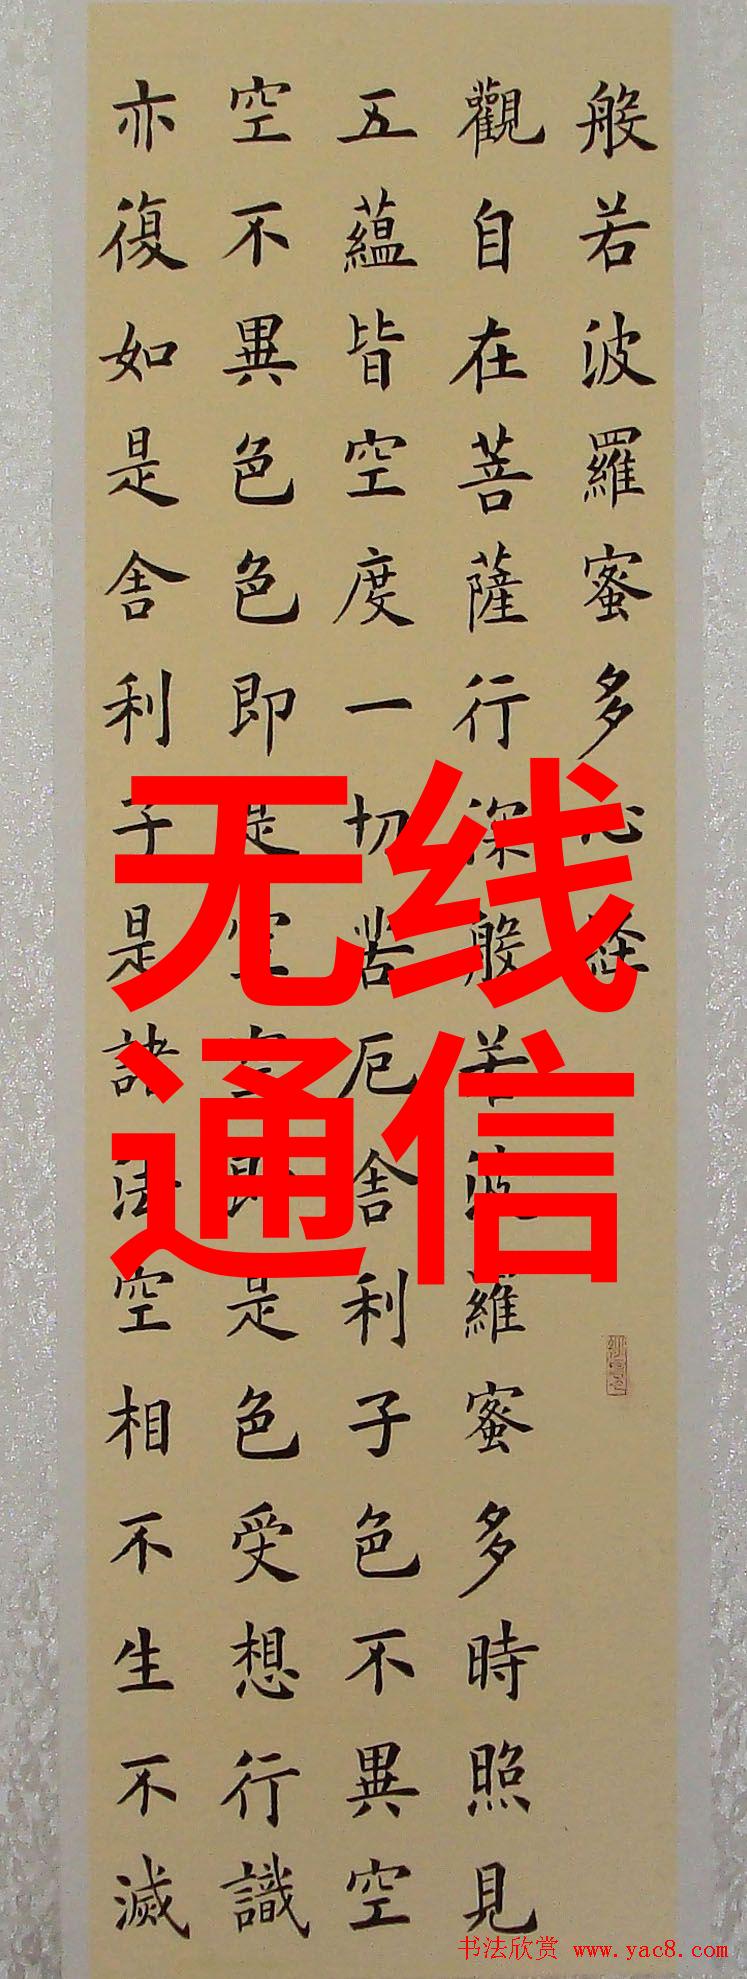 般若波羅蜜多心經
觀自在菩薩行深般若波羅蜜多時照見
五蘊皆空度一切苦厄舍利子色不異空
空不異色色即是空空即是色受想行識
亦復如是舍利子是諸法空相不生不滅
无线
通信
书法欣赏 www.yac8.com